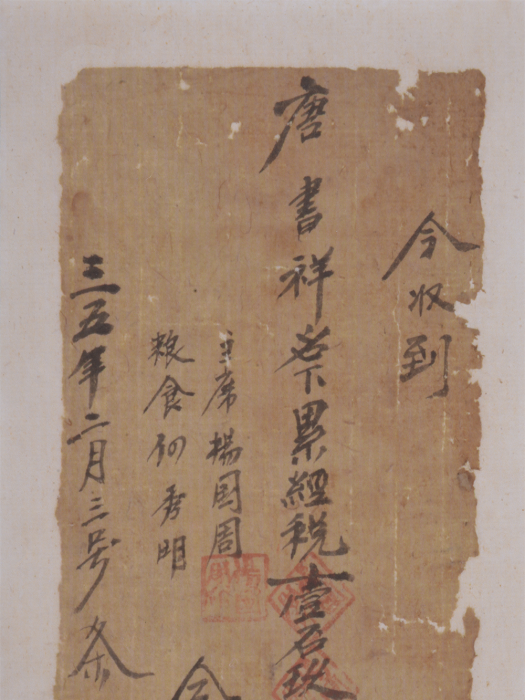 今收到
唐書祥名下累經税壹石玖
主席楊国周
粮食何秀明
三五年二月三号条